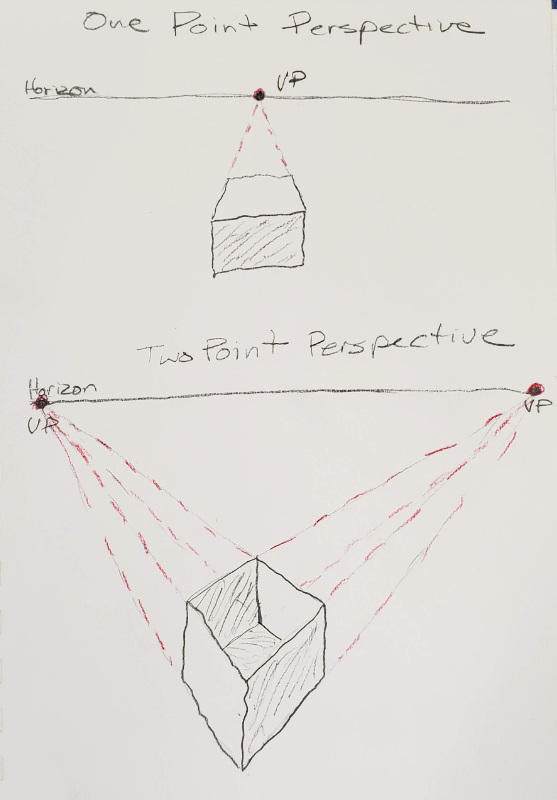 One Point Perspective
Horizon
VP
Two Point Perspective
Horizon
VP
VP